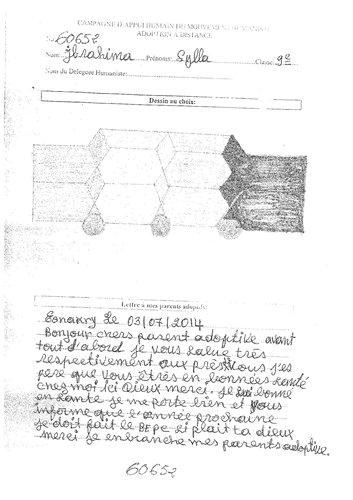 COMPAGNE D'APPUI HUMAIN DU MOUVEMENT HUMANISTE
ADOPTION A DISTANCE
No 60652
Nom: Jbrahima Prénoms: Sylla Classe: 9e
Nom du Délégore Humaniste:
Dessin au choix:
Lettre à mes parents adoptifs
Conakry Le 03/07/2014
Bonjour chers parent adoptive avant
tout d'abord je vous salue très
respectivement aux près vous j'es
pere que vous êtrês en bonnées santé
chez moi ici Dieux merci. je bonne
en santé je me porte bien et vous
informe que l'année prochaine
je doit fait le BEPC si plait ta dieux
merci je enbranche mes parents adoptive.
60652